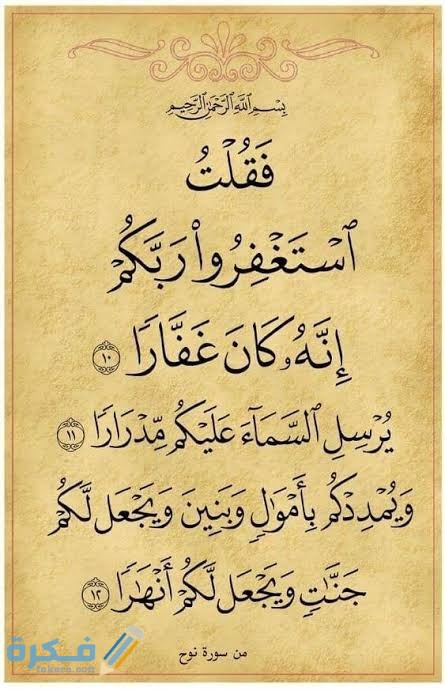 بِسْمِ اللَّهِ الرَّحْمَٰنِ الرَّحِيمِ
فَقُلْتُ
ٱسْتَغْفِرُوا۟ رَبَّكُمْ
إِنَّهُۥ كَانَ غَفَّارًا ١٠
يُرْسِلِ ٱلسَّمَآءَ عَلَيْكُم مِّدْرَارًا ١١
وَيُمْدِدْكُم بِأَمْوَٰلٍ وَبَنِينَ وَيَجْعَل لَّكُمْ
جَنَّٰتٍ وَيَجْعَل لَّكُمْ أَنْهَٰرًا ١٢
من سورة نوح
فكرة
fekera.com